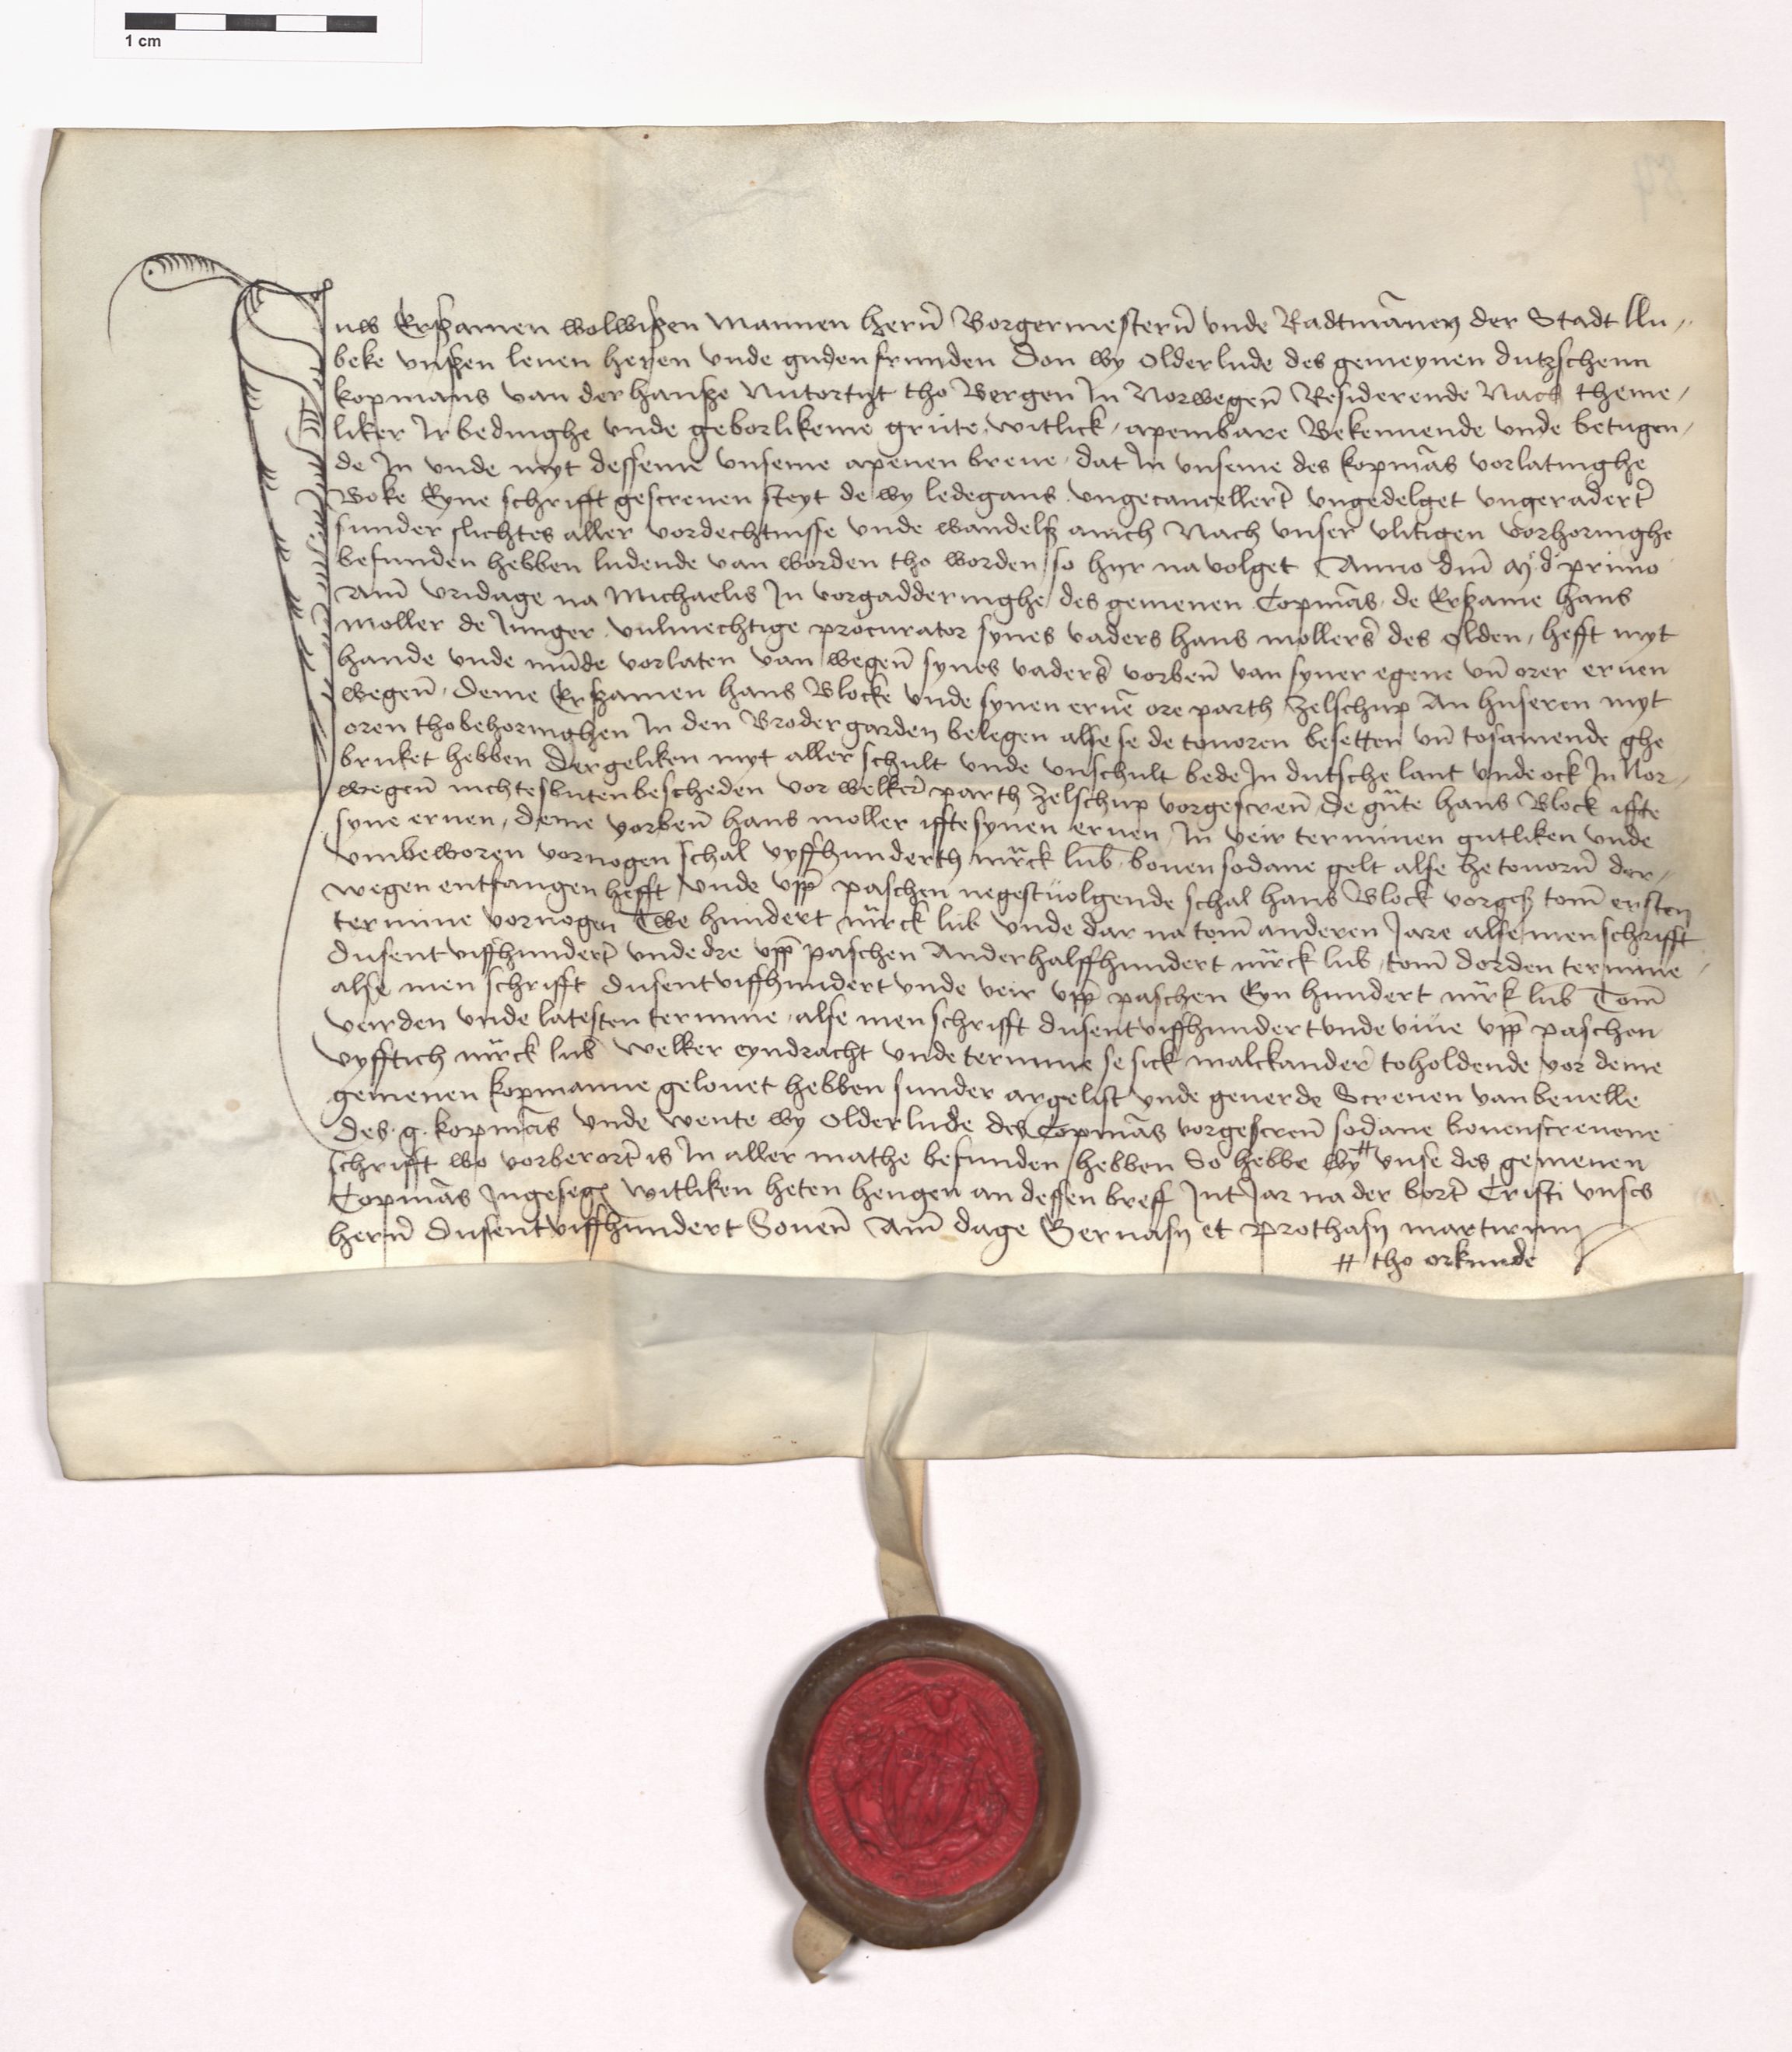 1 cm
Juw Erßamen wolwißen Mannen hern̄ Borgermestern̄ vnde Radtmāney der Stadt Llu„
beke vnßen leuen heren vnde guden frunden Don wy Olderlude des gemeynen dutzschenn
kopmans van der hanße Nutortyt tho Bergen In Norwegen̄ Residerende Nach theme„
liker Irbedinghe vnde geborlikeme grute witlick apembare Bekennende vnde betugen„
de In vnde myt desseme vnseme apenen breue dat In vnseme des kopmās vorlatinghe
Boke Eyne schrifft gescreuen steyt de wy ledegans vngecancellert vngedelget vngeradert
sunder slichtes aller vordechtnisse vnde wandelß anich Nach vnser vlitigen vorhoringhe
befunden hebben ludende van worden tho worden so hyr na volget Anno dm̄ M d primo
Am̄ vridage na Michaelis In vorgadderinghe des gemenen Copmās de Erßame hans
moller de Junger vulmechtige procurator synes vaders hans mollers des olden hefft myt
hande vnde mūde vorlaten van wegen̄ synes vaders vorben̄ van syner egene vn̄ orer eruen
wegen̄ deme Erßamen hans Blocke vnde synen eruē ore parth zelschup An huseren myt
oren thobehoringhen In den Brodergarden belegen alse se de touoren besetten vn̄ tosamende ghe
bruket hebben Dergeliken myt aller schult vnde vnschult bede In dutsche lant vnde ock In Nor„
wegen̄ nichtes buten bescheden vor welker parth zelschup vorgescreuen̄ de gūte hans Block iffte
syne eruen deme vorben̄ hans moller iffte synen eruen In veir terminen gutliken vnde
vmbeworen vornogen schal vyffhunderth mrck lub bouen sodane gelt alse he touorn̄ der„
wegen entfangen hefft vnde vpp paschen negestuolgende schal hans Block vorgeß tom̄ ersten
termine vornogen Twe hundert mrck lub vnde dar na tom̄ anderen Jare alse men schrifft
dusent viffhundert vnde dre vpp paschen Anderhalffhundert mrck lub tom̄ dorden termine
alse men schrifft dusent viffhundert vnde veir vpp paschen Eyn hundert mrk lub Tom̄
veirden vnde latesten termine alse men schrifft dusent viffhundert vnde viue vpp paschen
vyfftich mrck lub welker eyndracht vnde termine se sick malckander toholdende vor deme
gemenen kopmanne gelouet hebben sunder argelist vnde geuerde Screuen van beuelle
des g kopmās vnde wente wy Olderlude des Copmās vorgescreuen̄ sodane bouenscreuene
schrifft wo vorberort is In aller mathe befunden hebben So hebbe wy # vnse des gemenen
Copmās Ingesegel witliken heten hengen an dessen breff Int Jar na der bort Cristi vnses
hern̄ dusent viffhundert Souen̄ Am̄ dage Geruasy et prothasy martirum
# tho orkunde